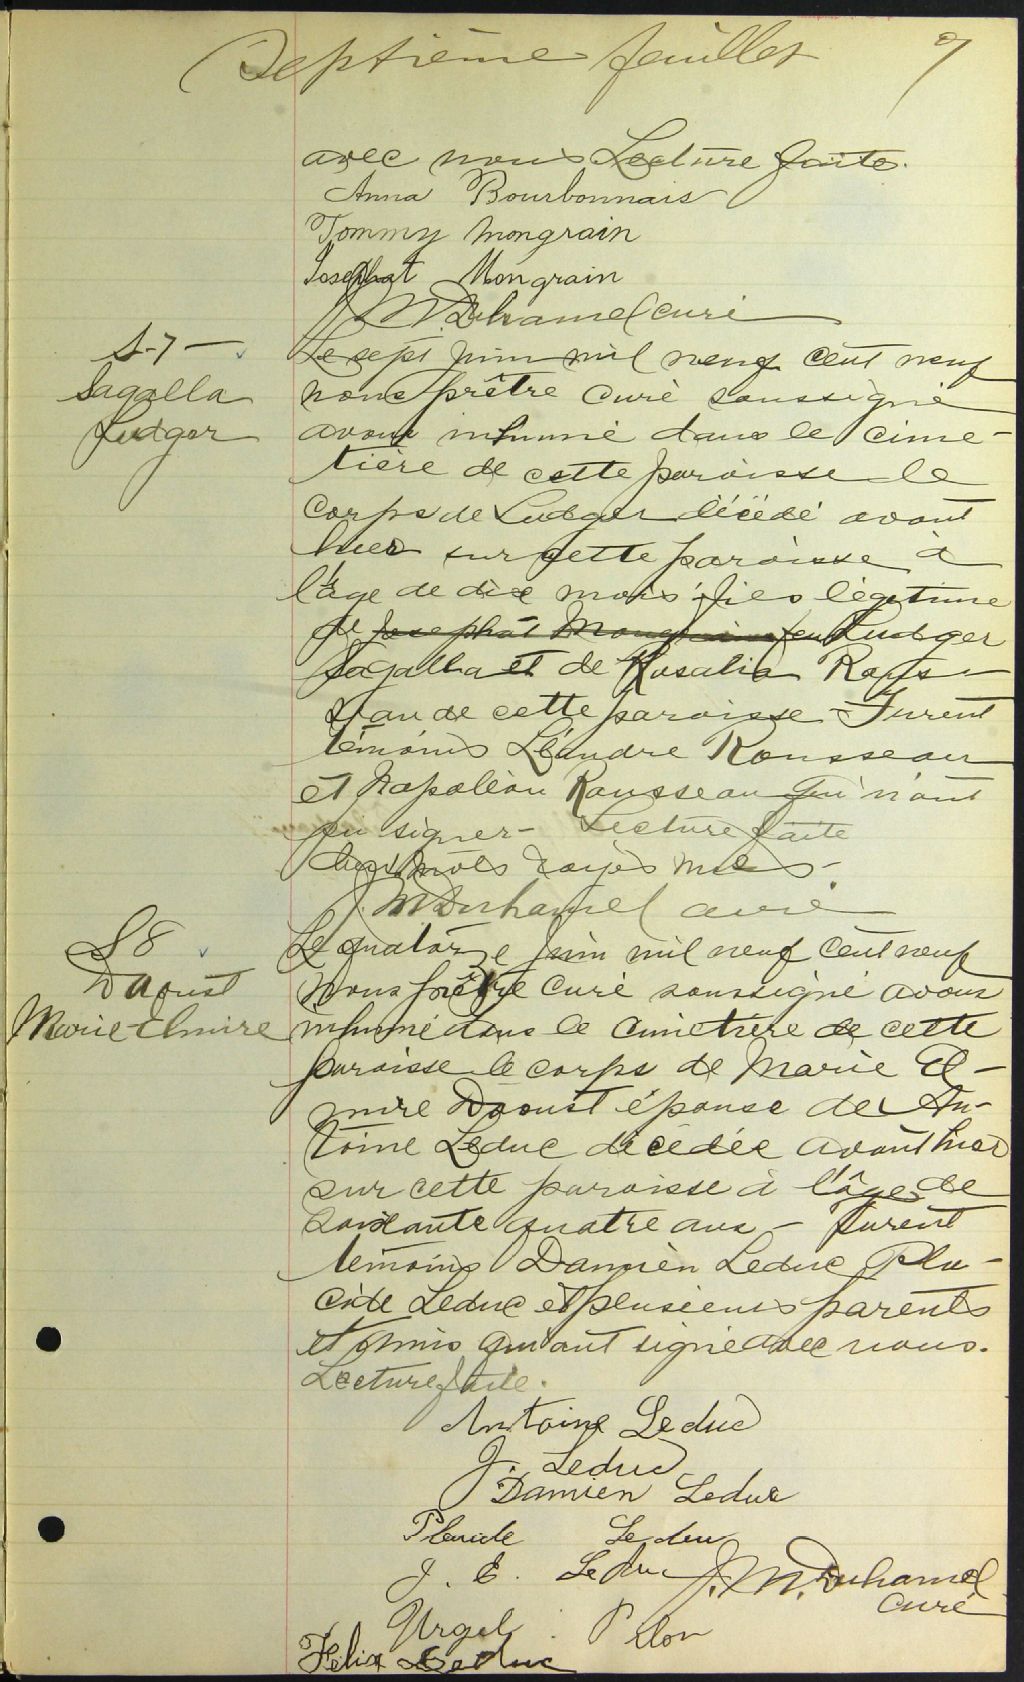 Septième feuillet 7
avec nous Lecture faite.
Anna Bourbonnais
Tommy Mongrain
Josephat Mongrain
J. M. Duhamel curé
S-7-
Sagalla
Ludger
Le sept juin mil neuf cent neuf
nous prêtre curé soussigné
avons inhumé dans le cime-
tière de cette paroisse le
corps de Ludger décédé avant
hier sur cette paroisse à
l'âge de dix mois fils légitime
de Josephat Mongrain Ludger
Sagalla et de Rosalia Rous-
seau de cette paroisse - Furent
témoins Léandre Rousseau
et Napoléon Rousseau qui n'ont
pu signer - Lecture faite
mots rayés nuls -
J. M Duhamel curé
S 8
Daoust
Marie-Elmire
Le quatorze juin mil neuf cent neuf
Nous prêtre curé soussigné avons
inhumé dans le cimetière de cette
paroisse le corps de Marie El-
mire Daoust épouse de An-
toine Leduc décédée avant hier
sur cette paroisse à l'âge de
soixante quatre ans - furent
témoins Damien Leduc Pla-
cide Leduc et plusieurs parents
et amis qui ont signé avec nous.
Lecture faite.
Antoine Leduc
J. Leduc
Damien Leduc
Placide Leduc
J. E. Leduc J. M. Duhamel
curé
Urgel Pilon
Felix Leduc